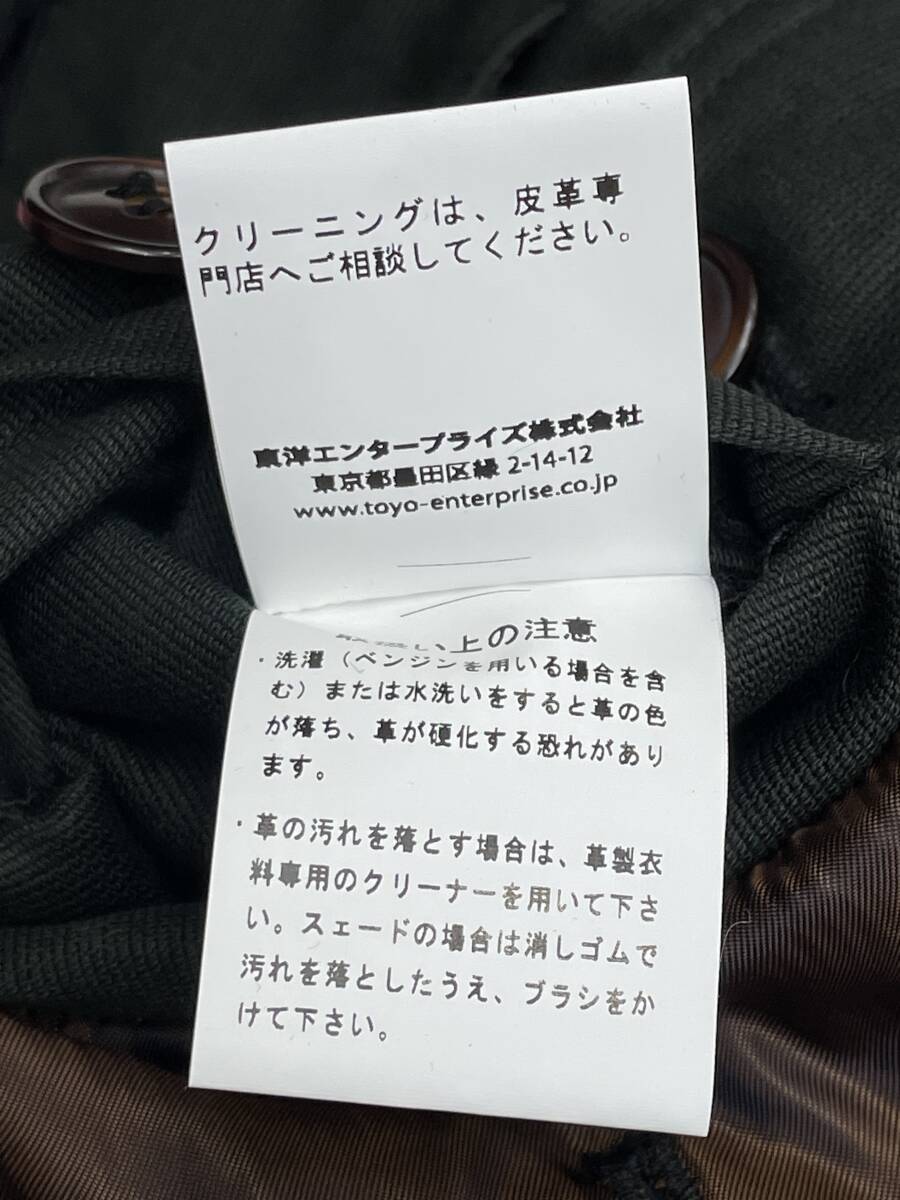 クリーニングは、皮革専
門店へご相談してください。
東洋エンタープライズ株式会社
東京都墨田区緑 2-14-12
www.toyo-enterprise.co.jp
上の注意
・洗濯（ベンジンを用いる場合を含
む）または水洗いをすると革の色
が落ち、革が硬化する恐れがあり
ます。
・革の汚れを落とす場合は、革製衣
料専用のクリーナーを用いて下さ
い。スエードの場合は消しゴムで
汚れを落としたうえ、ブラシをか
けて下さい。